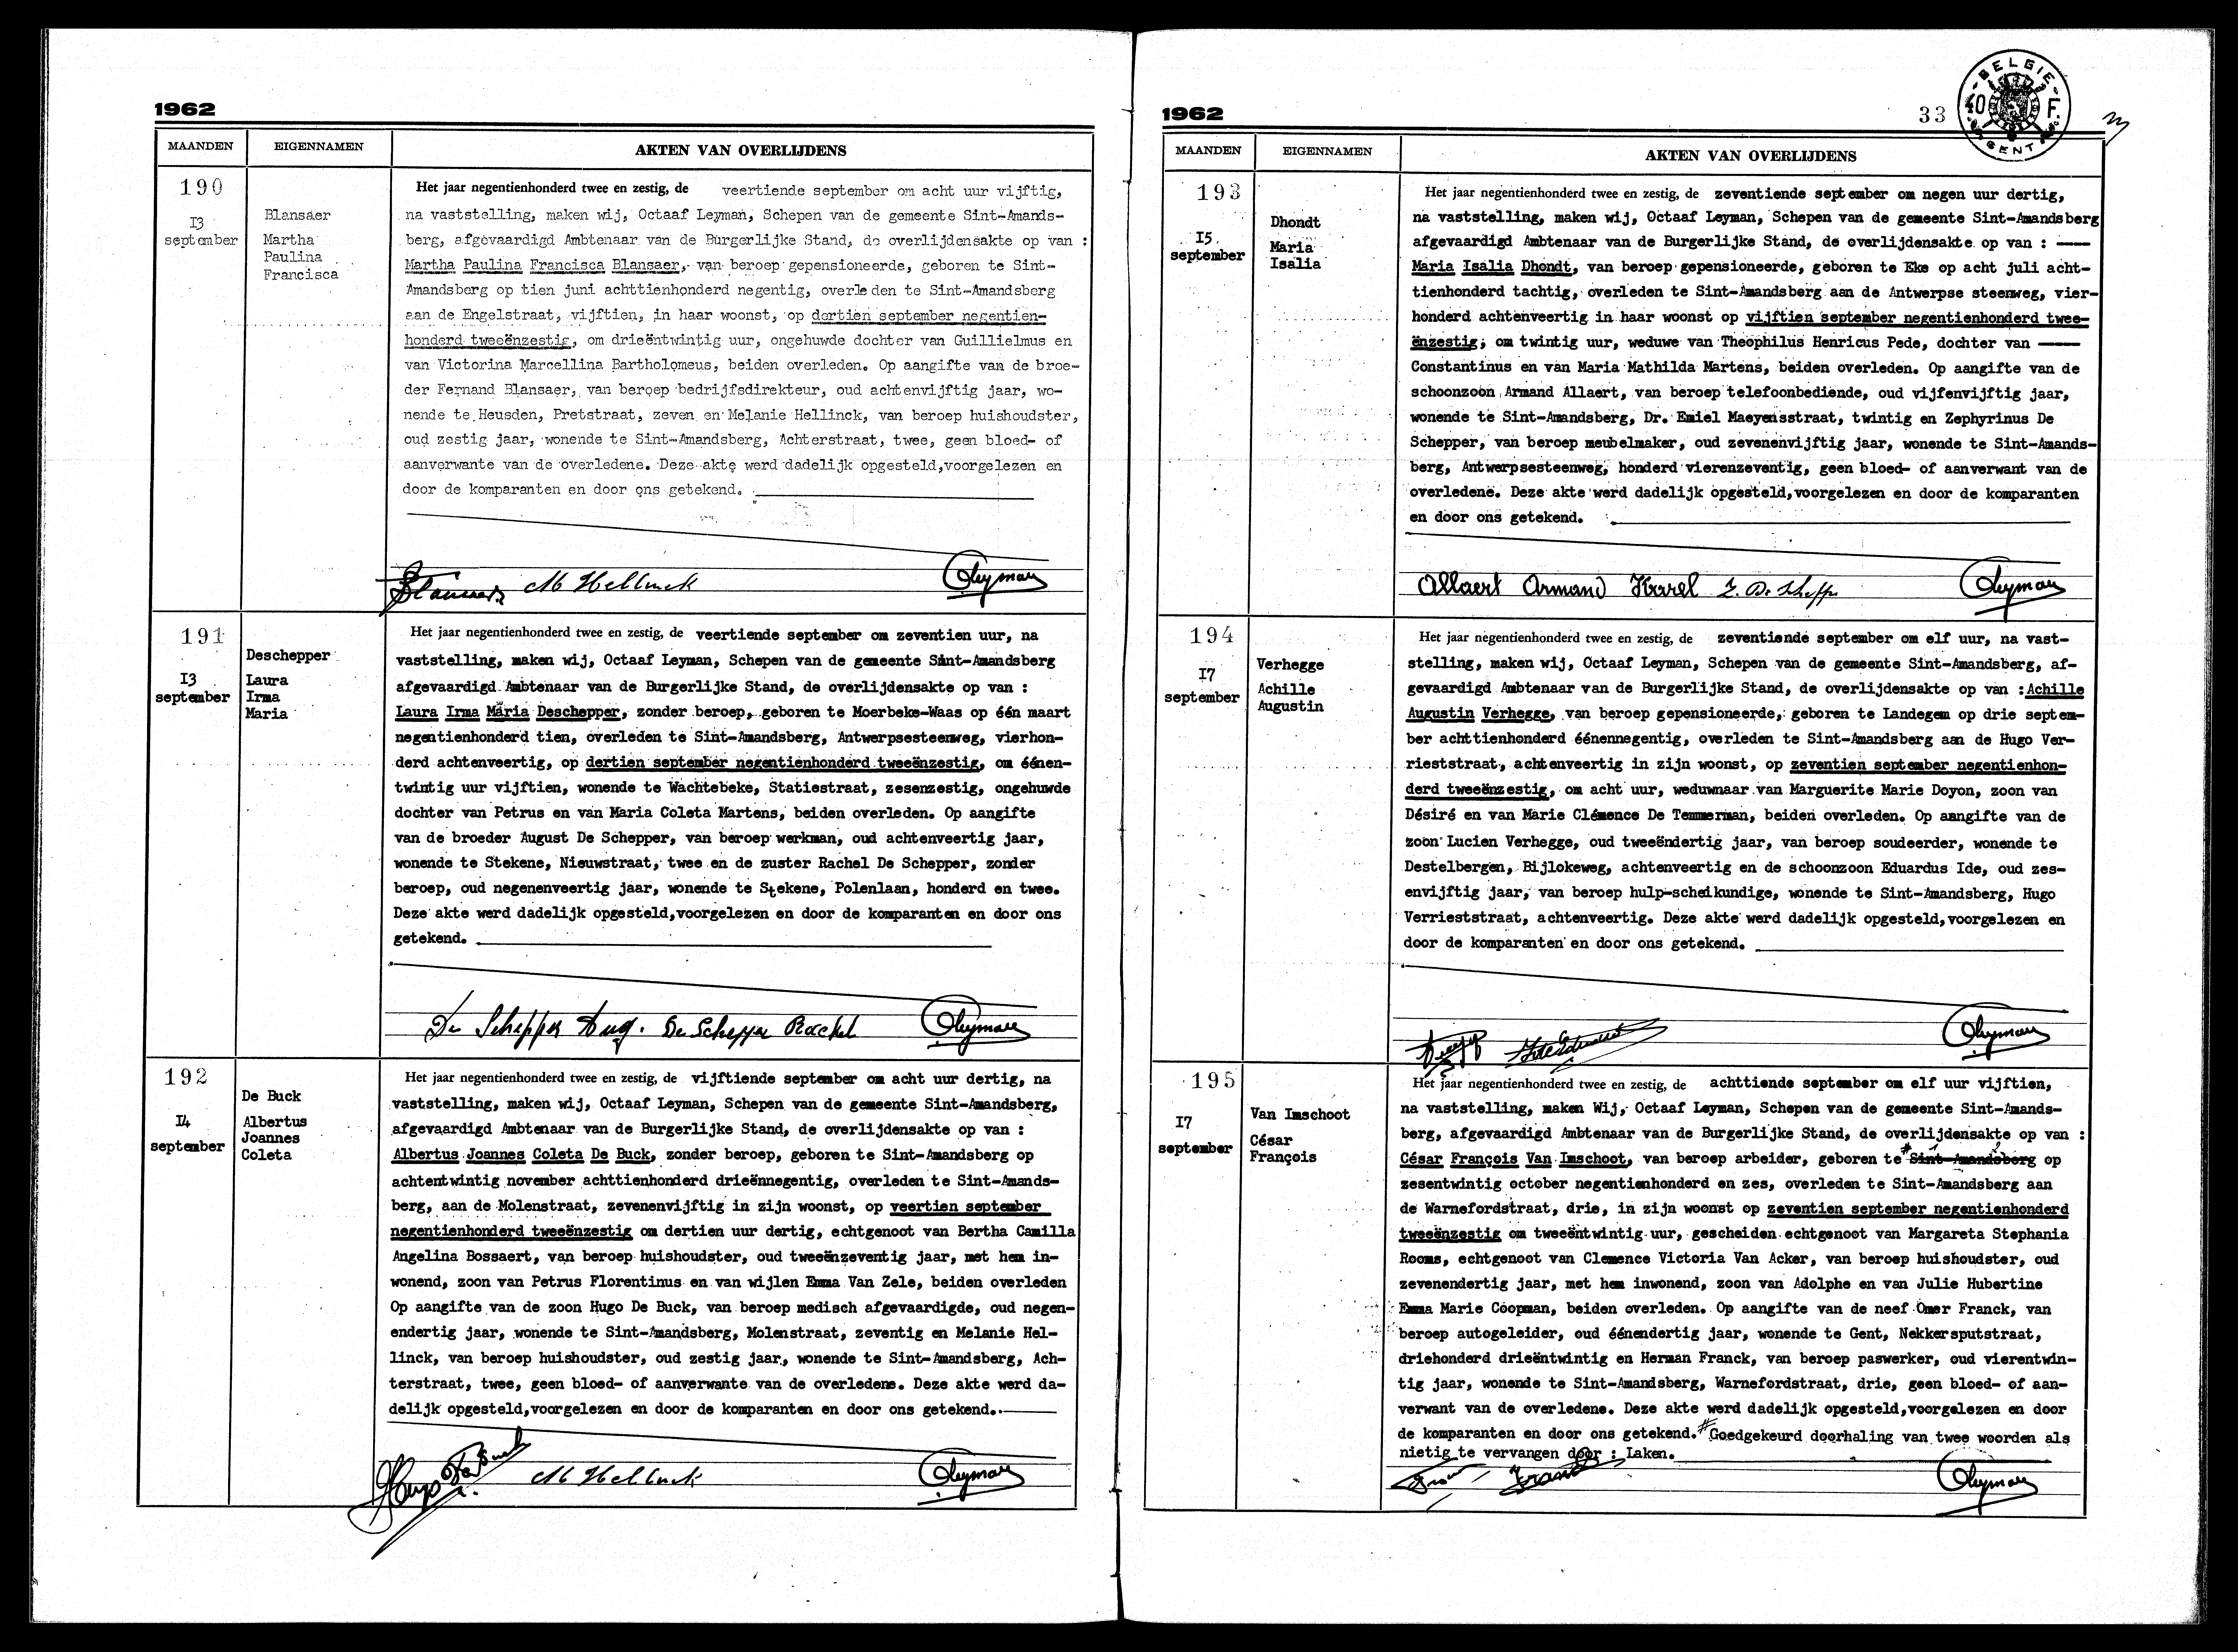 1962
MAANDEN
EIGENNAMEN
AKTEN VAN OVERLIJDENS
190
I3
september
Blansaer
Martha
Paulina
Francisca
Het jaar negentienhonderd twee en zestig, de veertiende september om acht uur vijftig,
na vaststelling, maken wij, Octaaf Leyman, Schepen van de gemeente Sint-Amands-
berg, afgevaardigd Ambtenaar van de Burgerlijke Stand, de overlijdensakte op van :
Martha Paulina Francisca Blansaer, van beroep gepensioneerde, geboren te Sint-
Amandsberg op tien juni achttienhonderd negentig, overleden te Sint-Amandsberg
aan de Engelstraat, vijftien, in haar woonst, op dertien september negentien-
honderd tweeënzestig, om drieëntwintig uur, ongehuwde dochter van Guillielmus en
van Victorina Marcellina Bartholomeus, beiden overleden. Op aangifte van de broe-
der Fernand Blansaer, van beroep bedrijfsdirekteur, oud achtenvijftig jaar, wo-
nende te Heusden, Pretstraat, zeven en Melanie Hellinck, van beroep huishoudster,
oud zestig jaar, wonende te Sint-Amandsberg, Achterstraat, twee, geen bloed- of
aanverwante van de overledene. Deze akte werd dadelijk opgesteld,voorgelezen en
door de komparanten en door ons getekend.
Blansaer M Hellinck OLeyman
191
I3
september
Deschepper
Laura
Irma
Maria
Het jaar negentienhonderd twee en zestig, de veertiende september om zeventien uur, na
vaststelling, maken wij, Octaaf Leyman, Schepen van de gemeente Sint-Amandsberg
afgevaardigd Ambtenaar van de Burgerlijke Stand, de overlijdensakte op van :
Laura Irma Maria Deschepper, zonder beroep, geboren te Moerbeke-Waas op één maart
negentienhonderd tien, overleden te Sint-Amandsberg, Antwerpsesteenweg, vierhon-
derd achtenveertig, op dertien september negentienhonderd tweeënzestig, om éénen-
twintig uur vijftien, wonende te Wachtebeke, Statiestraat, zesenzestig, ongehuwde
dochter van Petrus en van Maria Coleta Martens, beiden overleden. Op aangifte
van de broeder August De Schepper, van beroep werkman, oud achtenveertig jaar,
wonende te Stekene, Nieuwstraat, twee en de zuster Rachel De Schepper, zonder
beroep, oud negenenveertig jaar, wonende te Stekene, Polenlaan, honderd en twee.
Deze akte werd dadelijk opgesteld,voorgelezen en door de komparanten en door ons
getekend.
De Schepper Aug. De Schepper Rachel OLeyman
192
I4
september
De Buck
Albertus
Joannes
Coleta
Het jaar negentienhonderd twee en zestig, de vijftiende september om acht uur dertig, na
vaststelling, maken wij, Octaaf Leyman, Schepen van de gemeente Sint-Amandsberg,
afgevaardigd Ambtenaar van de Burgerlijke Stand, de overlijdensakte op van :
Albertus Joannes Coleta De Buck, zonder beroep, geboren te Sint-Amandsberg op
achtentwintig november achttienhonderd drieënnegentig, overleden te Sint-Amands-
berg, aan de Molenstraat, zevenenvijftig in zijn woonst, op veertien september
negentienhonderd tweeënzestig om dertien uur dertig, echtgenoot van Bertha Camilla
Angelina Bossaert, van beroep huishoudster, oud tweeënzeventig jaar, met hem in-
wonend, zoon van Petrus Florentinus en van wijlen Emma Van Zele, beiden overleden
Op aangifte van de zoon Hugo De Buck, van beroep medisch afgevaardigde, oud negen-
endertig jaar, wonende te Sint-Amandsberg, Molenstraat, zeventig en Melanie Hel-
linck, van beroep huishoudster, oud zestig jaar, wonende te Sint-Amandsberg, Ach-
terstraat, twee, geen bloed- of aanverwante van de overledene. Deze akte werd da-
delijk opgesteld,voorgelezen en door de komparanten en door ons getekend.
Hugo De Buck M Hellinck OLeyman
1962
33
BELGIE
40 F
GENT
MAANDEN
EIGENNAMEN
AKTEN VAN OVERLIJDENS
193
I5
september
Dhondt
Maria
Isalia
Het jaar negentienhonderd twee en zestig, de zeventiende september om negen uur dertig,
na vaststelling, maken wij, Octaaf Leyman, Schepen van de gemeente Sint-Amandsberg
afgevaardigd Ambtenaar van de Burgerlijke Stand, de overlijdensakte op van :
Maria Isalia Dhondt, van beroep gepensioneerde, geboren te Eke op acht juli acht-
tienhonderd tachtig, overleden te Sint-Amandsberg aan de Antwerpse steenweg, vier-
honderd achtenveertig in haar woonst op vijftien september negentienhonderd twee-
ënzestig, om twintig uur, weduwe van Theophilus Henricus Pede, dochter van
Constantinus en van Maria Mathilda Martens, beiden overleden. Op aangifte van de
schoonzoon Armand Allaert, van beroep telefoonbediende, oud vijfenvijftig jaar,
wonende te Sint-Amandsberg, Dr. Emiel Maeyensstraat, twintig en Zephyrinus De
Schepper, van beroep meubelmaker, oud zevenenvijftig jaar, wonende te Sint-Amands-
berg, Antwerpsesteenweg, honderd vierenzeventig, geen bloed- of aanverwant van de
overledene. Deze akte werd dadelijk opgesteld,voorgelezen en door de komparanten
en door ons getekend.
Allaert Armand Karel Z. De Schepper OLeyman
194
I7
september
Verhegge
Achille
Augustin
Het jaar negentienhonderd twee en zestig, de zeventiende september om elf uur, na vast-
stelling, maken wij, Octaaf Leyman, Schepen van de gemeente Sint-Amandsberg, af-
gevaardigd Ambtenaar van de Burgerlijke Stand, de overlijdensakte op van : Achille
Augustin Verhegge, van beroep gepensioneerde, geboren te Landegem op drie septem-
ber achttienhonderd éénennegentig, overleden te Sint-Amandsberg aan de Hugo Ver-
rieststraat, achtenveertig in zijn woonst, op zeventien september negentienhon-
derd tweeënzestig, om acht uur, weduwnaar van Marguerite Marie Doyon, zoon van
Désiré en van Marie Clémence De Temmerman, beiden overleden. Op aangifte van de
zoon Lucien Verhegge, oud tweeëndertig jaar, van beroep soudeerder, wonende te
Destelbergen, Bijlokeweg, achtenveertig en de schoonzoon Eduardus Ide, oud zes-
envijftig jaar, van beroep hulp-scheikundige, wonende te Sint-Amandsberg, Hugo
Verrieststraat, achtenveertig. Deze akte werd dadelijk opgesteld,voorgelezen en
door de komparanten en door ons getekend.
OLeyman
195
I7
september
Van Imschoot
César
François
Het jaar negentienhonderd twee en zestig, de achttiende september om elf uur vijftien,
na vaststelling, maken Wij, Octaaf Leyman, Schepen van de gemeente Sint-Amands-
berg, afgevaardigd Ambtenaar van de Burgerlijke Stand, de overlijdensakte op van :
César François Van Imschoot, van beroep arbeider, geboren te # Sint-Amandsberg op
zesentwintig october negentienhonderd en zes, overleden te Sint-Amandsberg aan
de Warnefordstraat, drie, in zijn woonst op zeventien september negentienhonderd
tweeënzestig om tweeëntwintig uur, gescheiden echtgenoot van Margareta Stephania
Rooms, echtgenoot van Clemence Victoria Van Acker, van beroep huishoudster, oud
zevenendertig jaar, met hem inwonend, zoon van Adolphe en van Julie Hubertine
Emma Marie Coopman, beiden overleden. Op aangifte van de neef Omer Franck, van
beroep autogeleider, oud éénendertig jaar, wonende te Gent, Nekkersputstraat,
driehonderd drieëntwintig en Herman Franck, van beroep paswerker, oud vierentwin-
tig jaar, wonende te Sint-Amandsberg, Warnefordstraat, drie, geen bloed- of aan-
verwant van de overledene. Deze akte werd dadelijk opgesteld,voorgelezen en door
de komparanten en door ons getekend. # Goedgekeurd doorhaling van twee woorden als
nietig te vervangen door : Laken.
Franck OLeyman